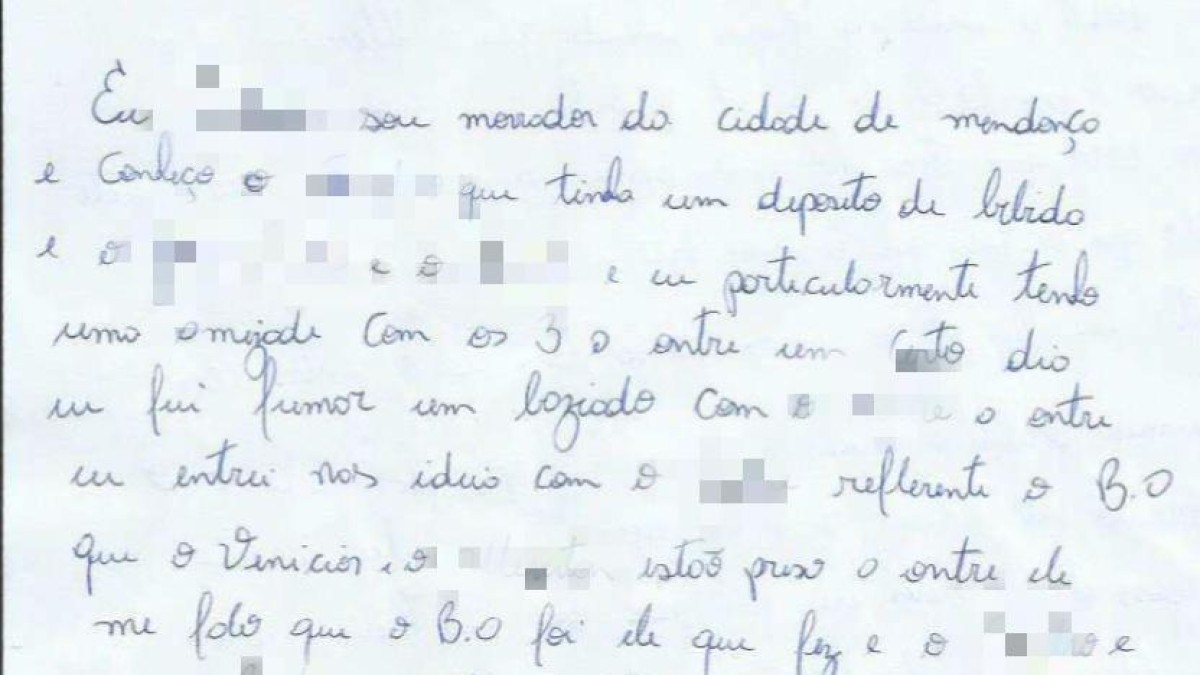 Eu sou morador da cidade de mendonça
e Conheço o que tinha um deposito de bibida
e o e o e eu particularmente tenho
uma amizade Com os 3 a ontre um Certo dia
eu fui fumar um baziado com o e a ontre
eu entrei nas ideia com o refferente o B.O
que o Venicios e o estão preso a ontre ele
me falo que o B.O foi ele que fez e o e